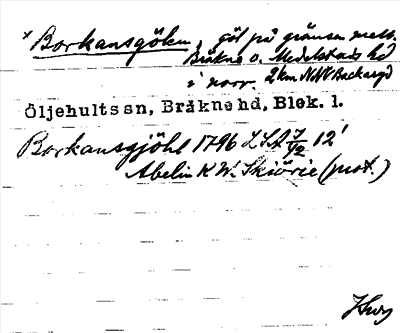 * Borkansgölen, göl på gränsen mell.
Bräkne o. Medelstads hd
i norr. 2 km NNV Backaryd
Öljehultssn, Bräknehd, Blek. l.
Borkansgjöhl 1796 LSA 7/42 12'
Abelin K W. Skiörie (prot.)